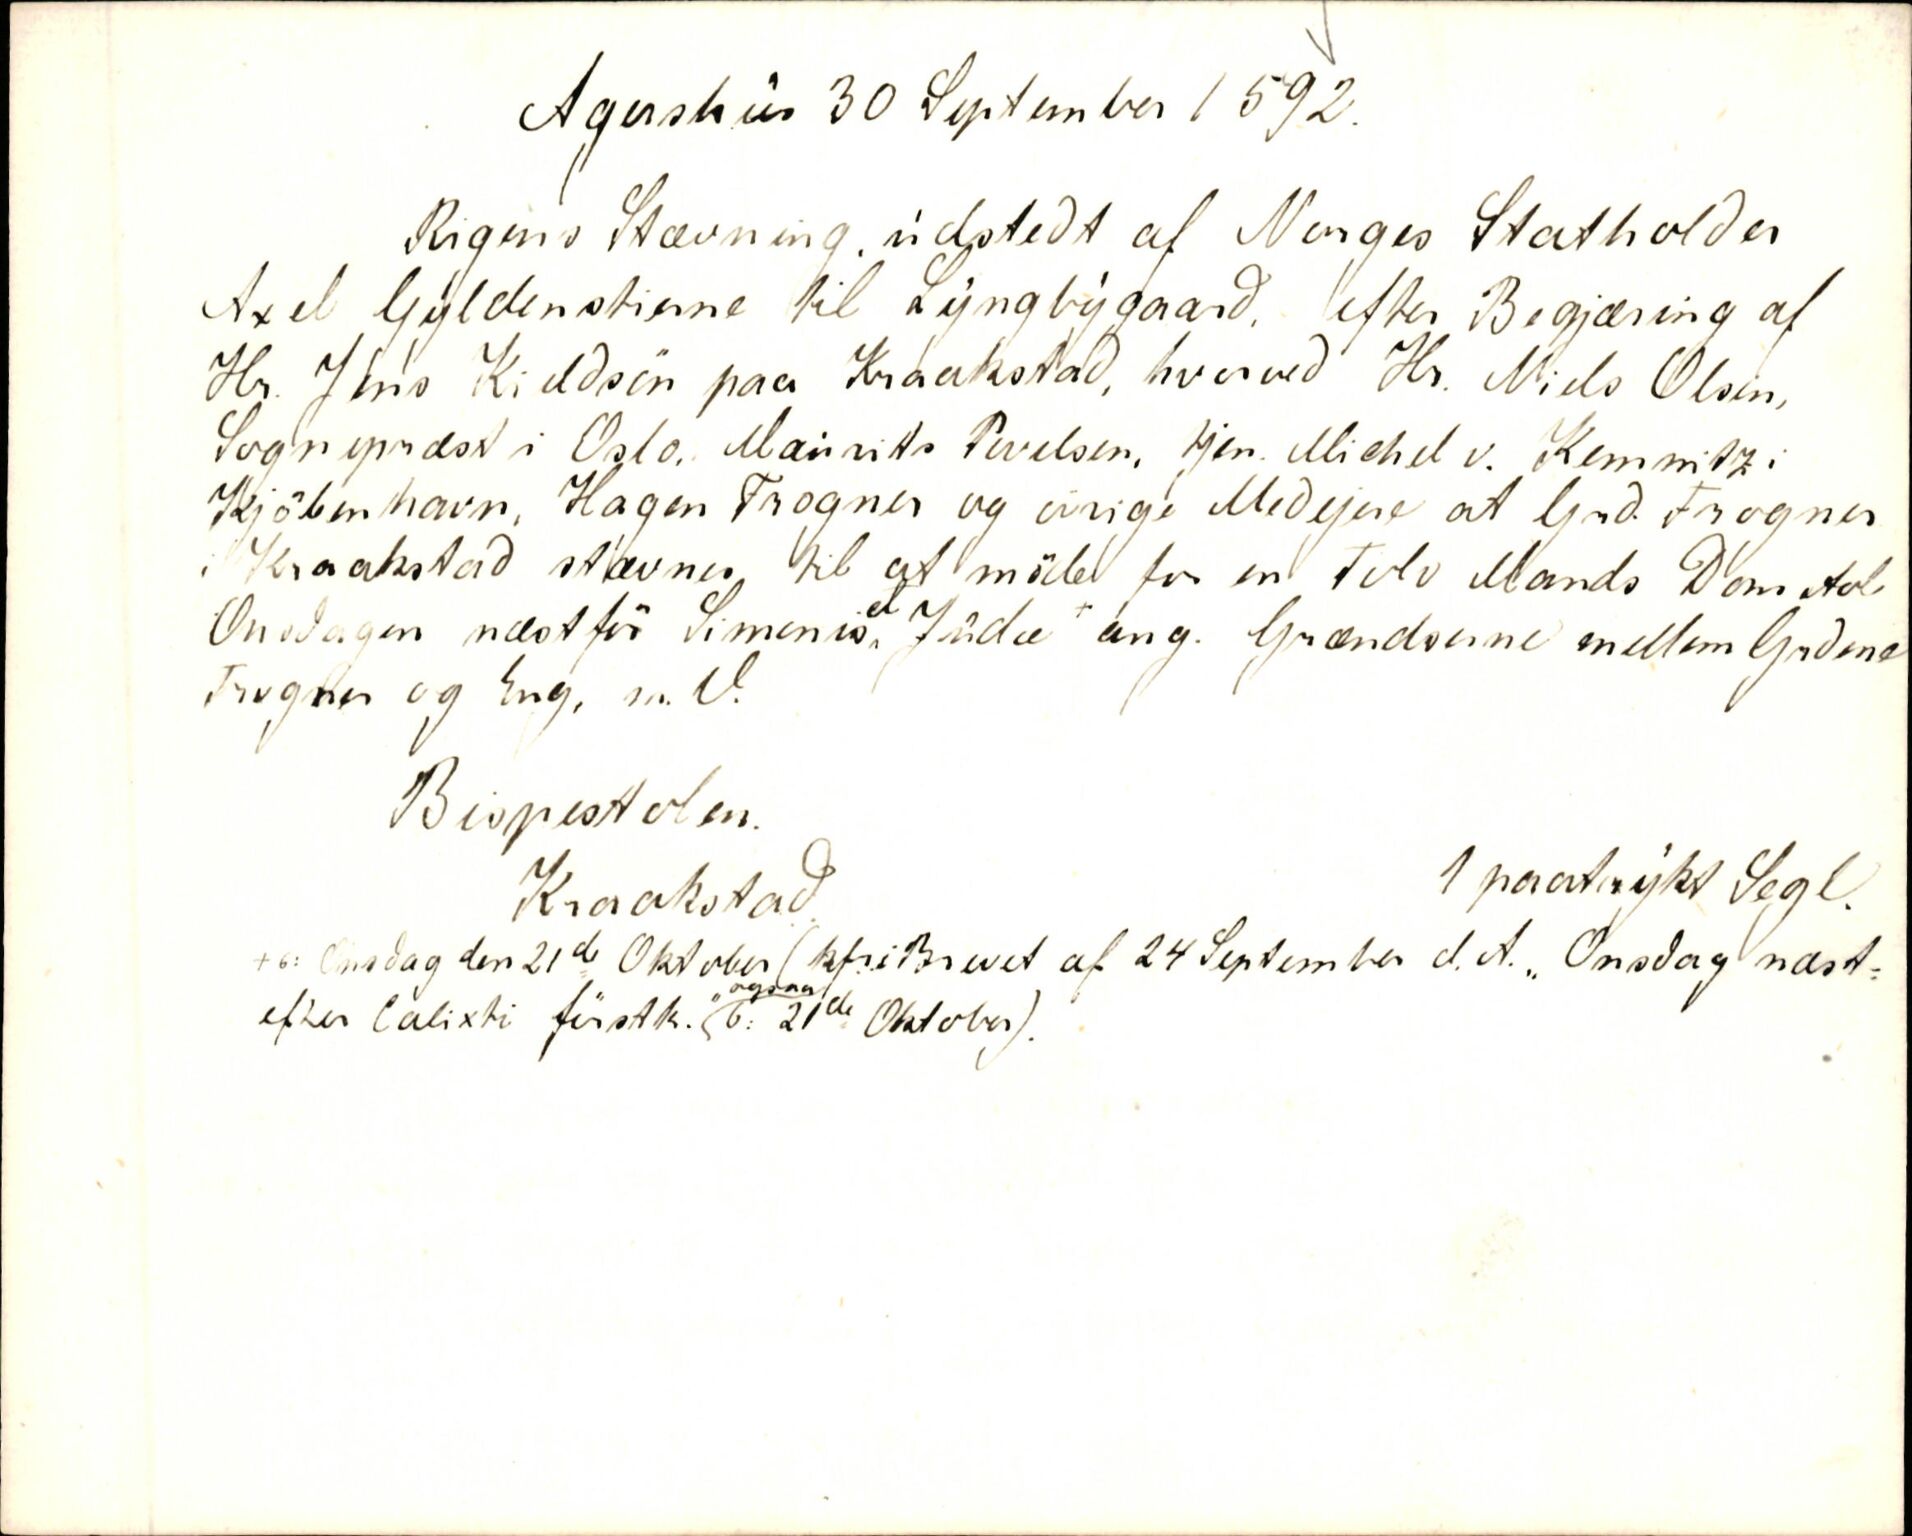 Agershús 30 September 1592.
Rigens Stævning, údstedt af Norges Statholder
Axel Gyldenstierne til Lyngbygaard, efter Begjæring af
Hr. Jens Kieldsön paa Kraakstad, hvorved Hr. Niels Olsen,
Sognepræst i Oslo, Maúrits Povelsen, tjen. Michel v. Kemnitz i
Kjöbenhavn, Hagen Frogner og övrige Medejere at Grd. Frogner
i Kraakstad stævnes til at möde for en Tolv Mands Dom Aol
Onsdagen næstför Simonis et Júdæ + ang. Grændserne mellem Grdene
Frogner og Eng, m. V.
Bispestolen.
Kraakstad.
1 paatrykt Segl.
+ ɔ: Onsdag den 21de Oktober (kfr. i Brevet af 24 September d. A. „Onsdag næst-
efter Calixti förstk." ɔ: ogsaa 21de Oktober).